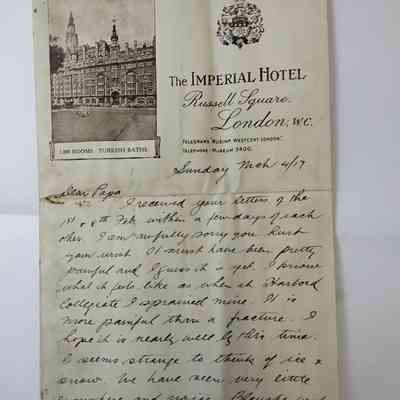 1,000 ROOMS. TURKISH BATHS.
The IMPERIAL HOTEL
Russell Square,
London, W.C.
TELEPHONE: MUSEUM 3400.
Sunday Mch 4/17
Dear Papa
I received your letters of the
1st & 8th Feb within a few days of each
other. I am awfully sorry you hurt
your wrist. It must have been pretty
painful and I guess is yet. I know
what it feels like as when at Harbord
Collegiate I sprained mine. It is
more painful than a fracture. I
hope it is nearly well by this time.
It seems strange to think of ice &
snow. We have seen very little